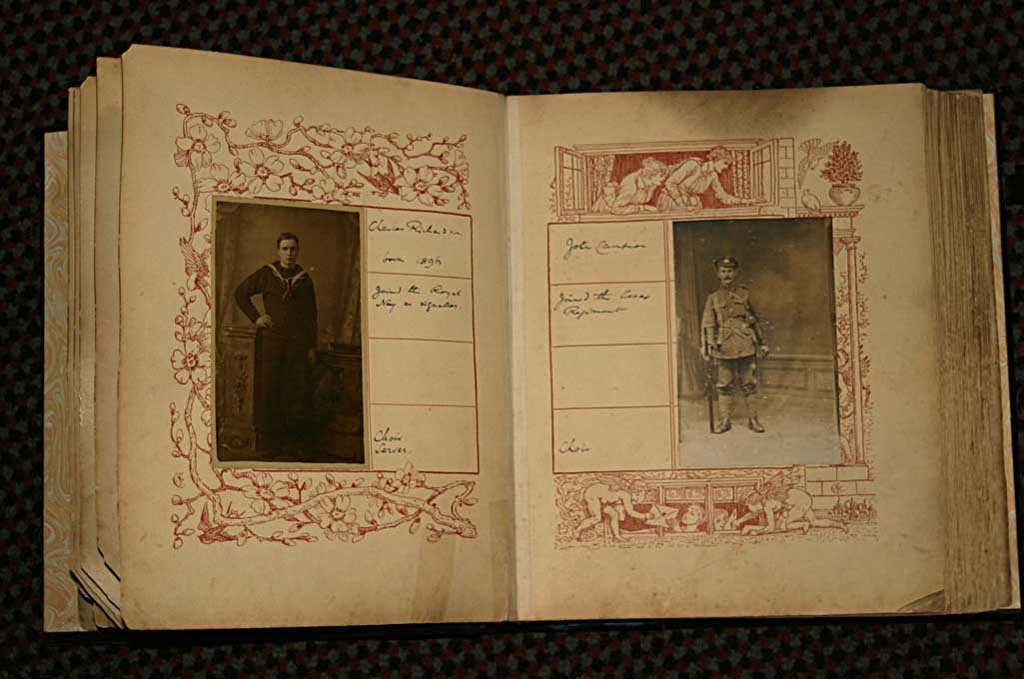 Charles Richardson
born 1896
Joined the Royal
Navy as signaller.
Choir
Server.
John Campion
Joined the Essex
Regiment
Choir